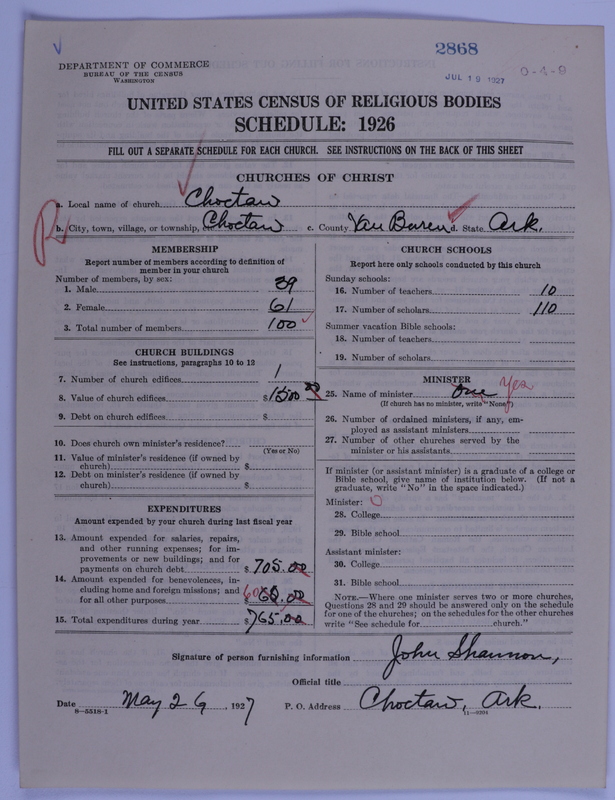 2868
DEPARTMENT OF COMMERCE
BUREAU OF THE CENSUS
WASHINGTON
JUL 19 1927
0-4-9
UNITED STATES CENSUS OF RELIGIOUS BODIES
SCHEDULE: 1926
FILL OUT A SEPARATE SCHEDULE FOR EACH CHURCH. SEE INSTRUCTIONS ON THE BACK OF THIS SHEET
CHURCHES OF CHRIST
a. Local name of church Choctaw
b. City, town, village, or township, Choctaw c. County Van Buren d. State Ark.
MEMBERSHIP
Report number of members according to definition of
member in your church
Number of members, by sex:
1. Male 39
2. Female 61
3. Total number of members 100
CHURCH BUILDINGS
See instructions, paragraphs 10 to 12
7. Number of church edifices 1
8. Value of church edifices $1500 00
9. Debt on church edifices $
10. Does church own minister's residence?
(Yes or No)
11. Value of minister's residence (if owned by
church) $
12. Debt on minister's residence (if owned by
church) $
EXPENDITURES
Amount expended by your church during last fiscal year
13. Amount expended for salaries, repairs,
and other running expenses; for im-
provements or new buildings; and for
payments on church debt $705.00
14. Amount expended for benevolences, in-
cluding home and foreign missions; and
for all other purposes 60 60.00
15. Total expenditures during year $765.00
CHURCH SCHOOLS
Report here only schools conducted by this church
Sunday schools:
16. Number of teachers 10
17. Number of scholars 110
Summer vacation Bible schools:
18. Number of teachers
19. Number of scholars
MINISTER
25. Name of minister one Yes
(If church has no minister, write "None")
26. Number of ordained ministers, if any, em-
ployed as assistant ministers
27. Number of other churches served by the
minister or his assistants
If minister (or assistant minister) is a graduate of a college or
Bible school, give name of institution below. (If not a
graduate, write "No" in the space indicated.)
Minister: O
28. College
29. Bible school
Assistant minister:
30. College
31. Bible school
NOTE.—Where one minister serves two or more churches,
Questions 28 and 29 should be answered only on the schedule
for one of the churches; on the schedules for the other churches
write "See schedule for church."
Signature of person furnishing information John Shannon,
Official title
Date May 26, 1927 P. O. Address Choctaw, Ark.
8—5518-1 11—9204